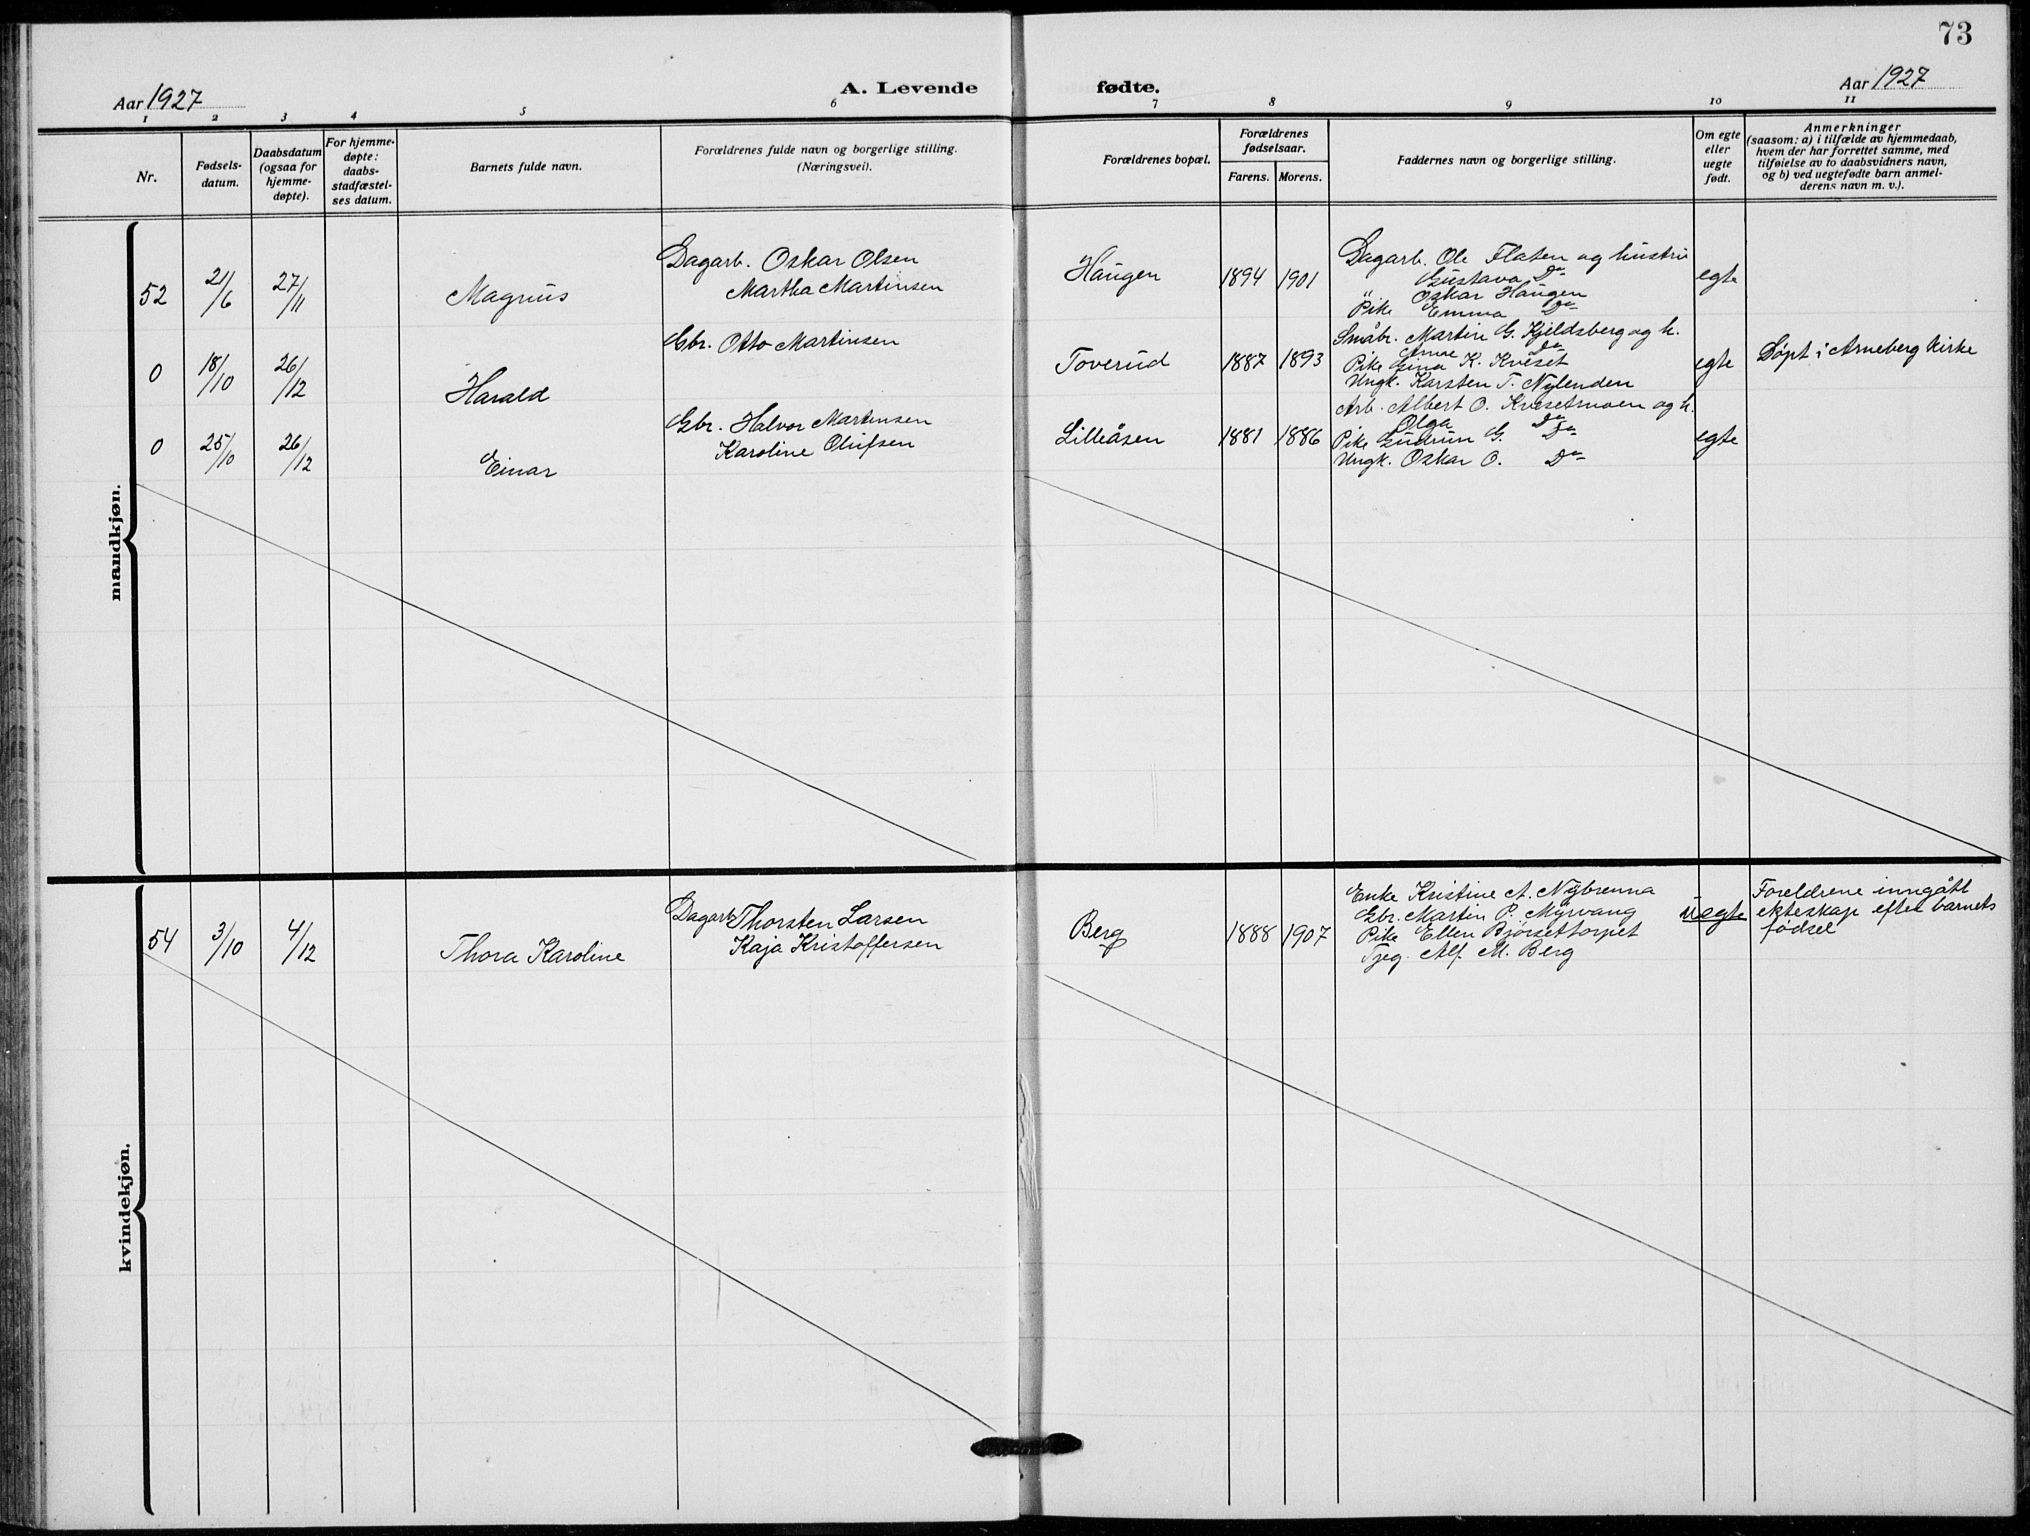 73
Aar 1927
A. Levende fødte.
Aar 1927
1 2 3 4 5 6 7 8 9 10 11
Nr.
Fødsels-
datum.
Daabsdatum
(ogsaa for
hjemme-
døpte).
For hjemme-
døpte:
daabs-
stadfæstel-
ses datum.
Barnets fulde navn.
Forældrenes fulde navn og borgerlige stilling.
(Næringsvei).
Forældrenes bopæl.
Forældrenes
fødselsaar.
Farens. Morens.
Faddernes navn og borgerlige stilling.
Om egte
eller
uegte
født.
Anmerkninger
(saasom: a) i tilfælde av hjemmedaab,
hvem der har forrettet samme, med
tilføielse av to daabsvidners navn,
og b) ved uegtefødte barn anmel-
derens navn m. v.).
mandkjøn.
52 21/6 27/11 Magnus
Dagarb. Oskar Olsen
Martha Martinsen
Haugen 1894 1901
Dagarb. Ole Flaten og hustru
Gustava Do
" Oskar Haugen
Pike Emma Do
egte
0 18/10 26/12 Harald
Gbr. Otto Martinsen
Toverud 1887 1893
Småbr. Martin G. Kjeldsberg og h.
Do
Pike Gina K. Kveset
Ungk. Karsten T. Nylenden
egte
Döpt i Arneberg kirke
0 25/10 26/12 Einar
Gbr. Halvor Martinsen
Karoline Olufsen
Lilleåsen 1881 1886
Arb. Albert O. Kvesetmoen og h.
Olga Do
Pike Gudrun G. Do
Ungk. Oskar O. Do
egte
kvindekjøn.
54 3/10 4/12 Thora Karoline
Dagarb. Thorsten Larsen
Kaja Kristoffersen
Berg 1888 1907
Enke Kristine A. Nybrenna
Gbr. Martin P. Myrvang
Pike Ellen Bjørsettorpet
Tjeg. Alf M. Berg
uegte
Foreldrene inngått
ekteskap efter barnets
födsel